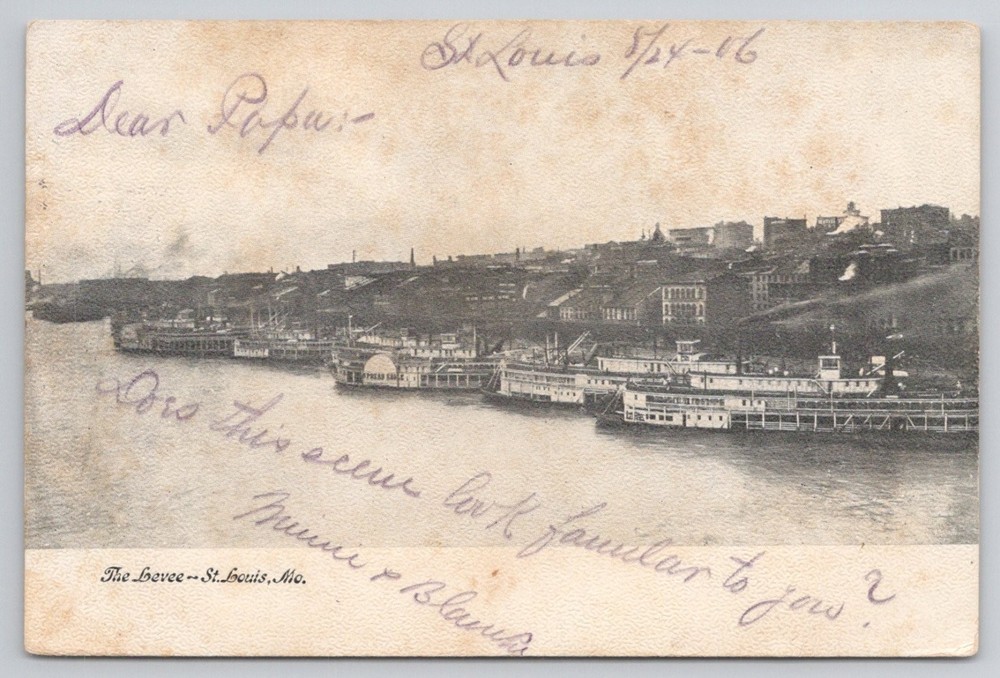 St Louis 8/24-06
Dear Papa:-
Does this scene look familiar to you?
Minnie & Blanche
The Levee~St. Louis, Mo.